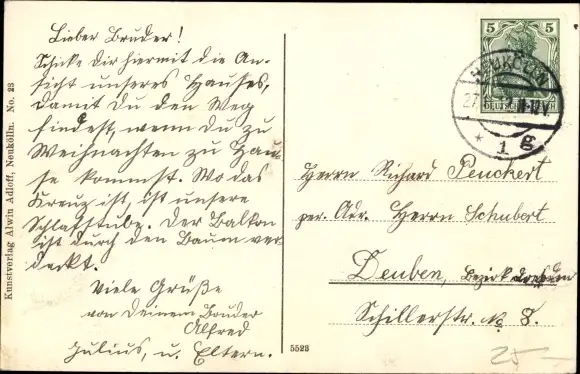 Lieber Bruder!
Schicke Dir hiermit die An-
sicht unseres Hauses,
damit Du den Weg
findest, wenn du zu
Weihnachten zu Hau-
se kommst. Wo das
Kreuz ist, ist unsere
Schlafstube. Der Balkon
ist durch den Baum ver-
deckt.
Viele Grüße
von Deinem Bruder
Alfred
Julius, u. Eltern.
Kunstverlag Alwin Adloff, Neukölln. No. 23
5523
5 5
DEUTSCHES REICH
NEUKÖLLN
27.
* 1 g
Herrn Richard Peuckert
per. Adr. Herrn Schubert
Deuben, Bezirk Dresden
Schillerstr. No 8.
25-